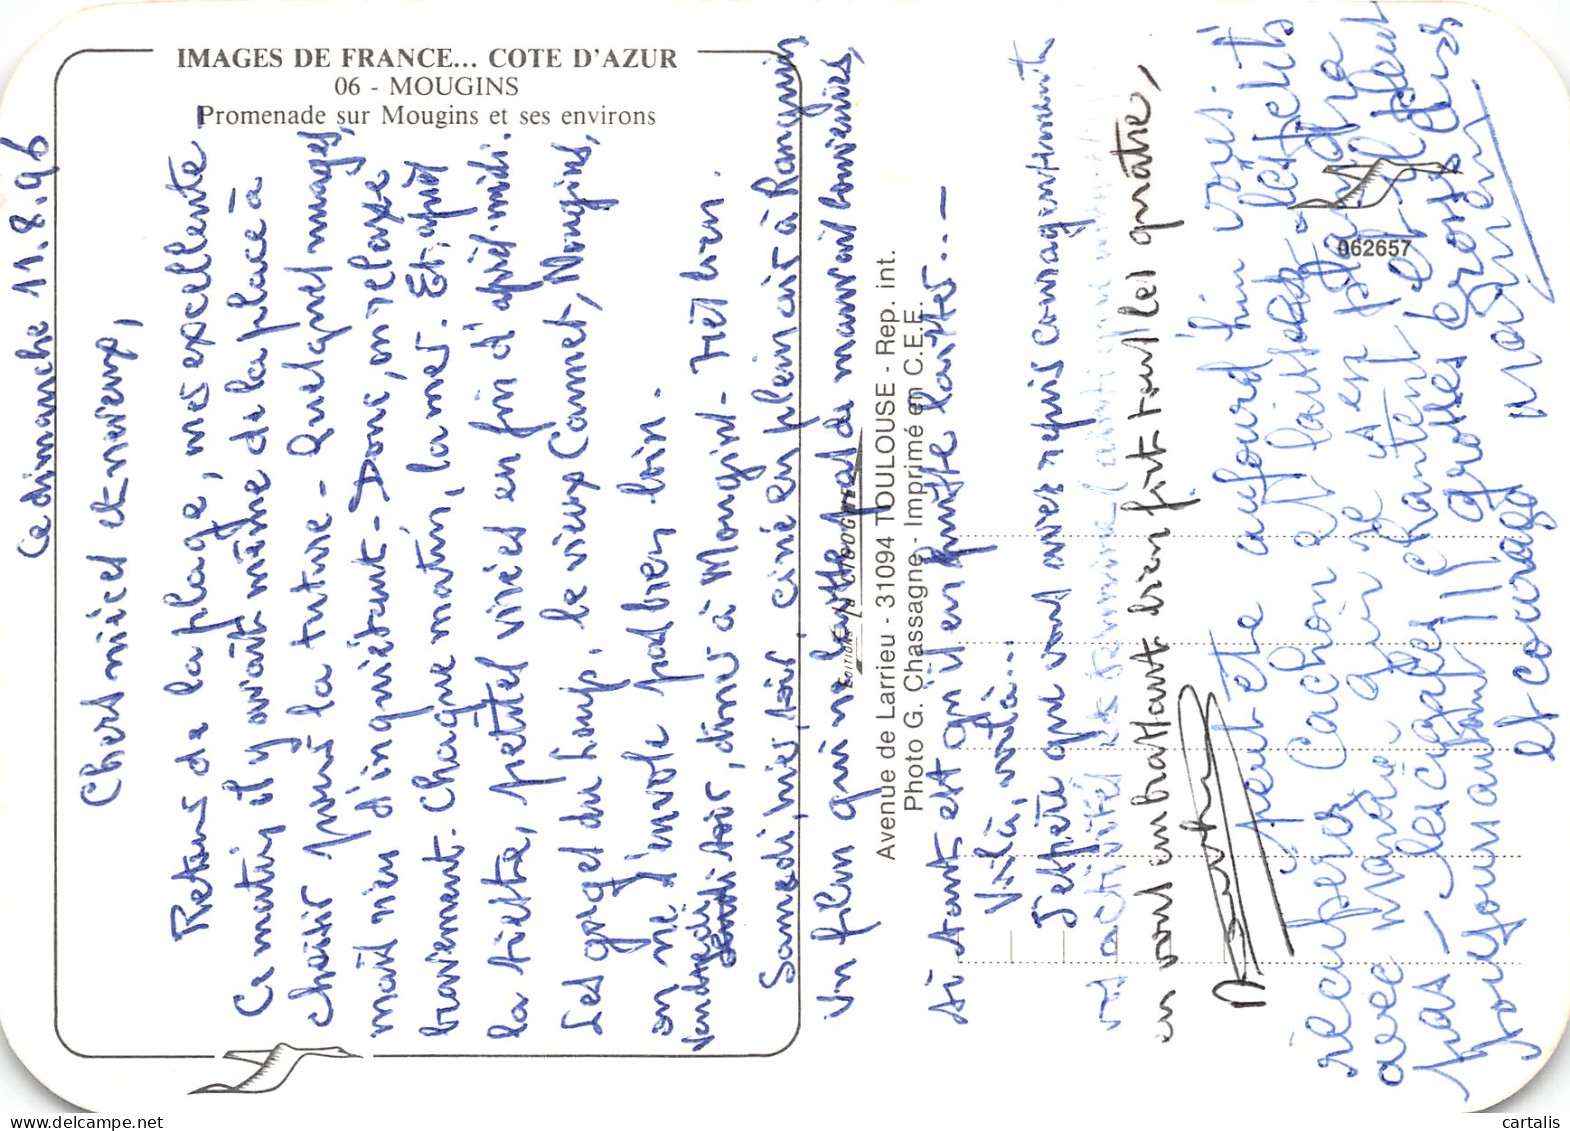 IMAGES DE FRANCE... COTE D'AZUR
06 - MOUGINS
Promenade sur Mougins et ses environs
Ce dimanche 11.8.96
Chers nièces et neveux,
Retour de la plage, mer excellente
Ce matin, il y avait même de la place à
choisir pour la
mais rien d'inquiétant - Donc, on relaxe
bravement. Chaque matin, la mer. Et, après
la sieste, petites virées en fin d'après-midi.
Les gorges du Loup, le vieux Cannet, Mougins,
on ne s'envole pas bien loin.
Vendredi soir, diner à Mougins - très bien.
Samedi, hier, soir, ciné en plein air à
un film qui ne laisse pas de mauvais souvenirs,
si tant est qu'il en puisse laisser...-
Voilà, voilà...
J'espère que vous avez repris courageusement
vos activités
en vous embrassant bien fort tous les quatre,
peut-être aujourd'hui vous
récupérez Cachou et laissez les petits
avec Mamie, qui ne s'en plaindra
pas - les cigales chantent et il pleut
toujours autant !!! grosses grosses bises
et courage
ÉDITIONS "LA CIGOGNE"
Avenue de Larrieu - 31094 TOULOUSE - Rep. int.
Photo G. Chassagne - Imprimé en C.E.E.
062657
cartalis
https://www.delcampe.net